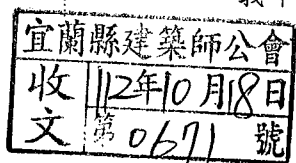 宜蘭縣建築師公會
收文
112年10月18日
第0671號